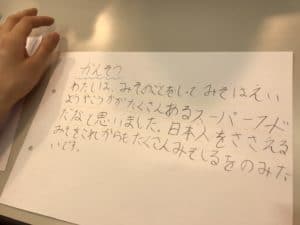 かんそう
わたしは、みそのことをしてみそはえい
ようやこうかがたくさんあるスーパーフード
だなと思いました。日本人をささえる
みそをこれからもたくさんみそしるをのみた
いです。